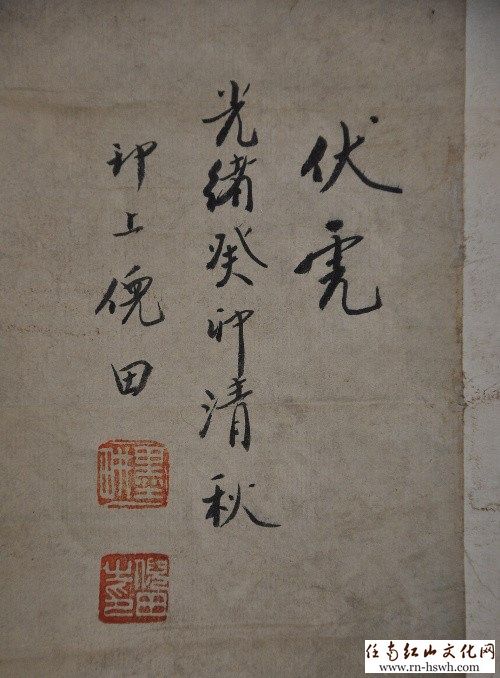 伏虎
光緒癸卯清秋
邗上倪田
墨畊
倪田
任南红山文化网
www.rn-hswh.com